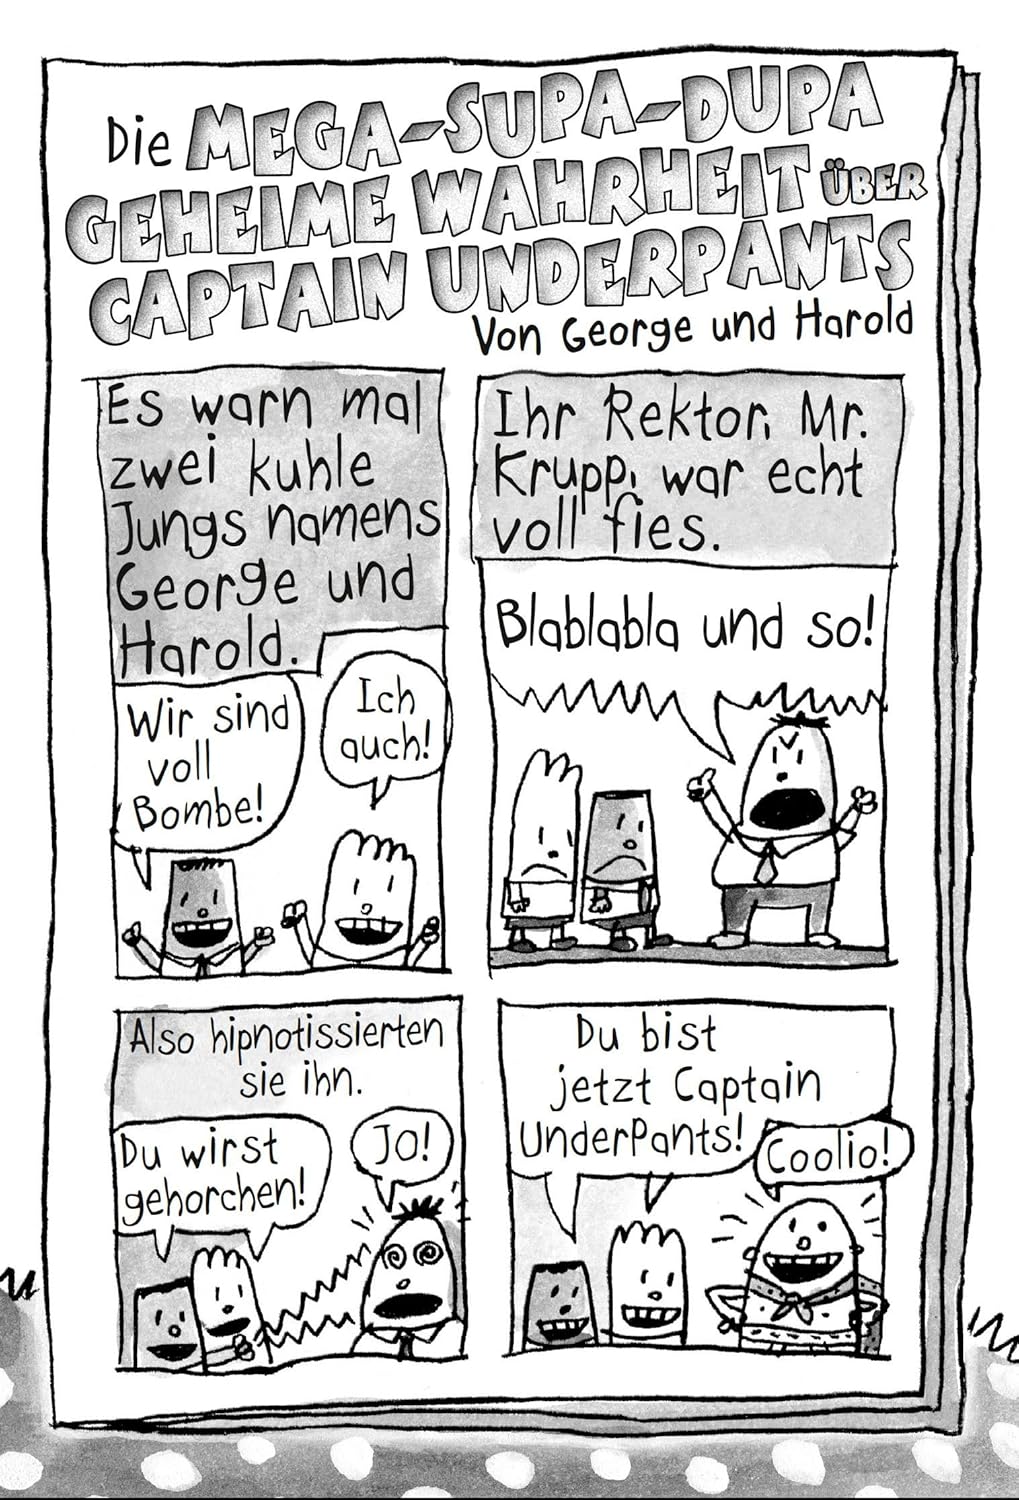 Die MEGA-SUPA-DUPA
GEHEIME WAHRHEIT ÜBER
CAPTAIN UNDERPANTS
Von George und Harold
Es warn mal
zwei kuhle
Jungs namens
George und
Harold.
Wir sind
voll
Bombe!
Ich
auch!
Ihr Rektor, Mr.
Krupp, war echt
voll fies.
Blablabla und so!
Also hipnotissierten
sie ihn.
Du wirst
gehorchen!
Jo!
Du bist
jetzt Captain
UnderPants!
Coolio!